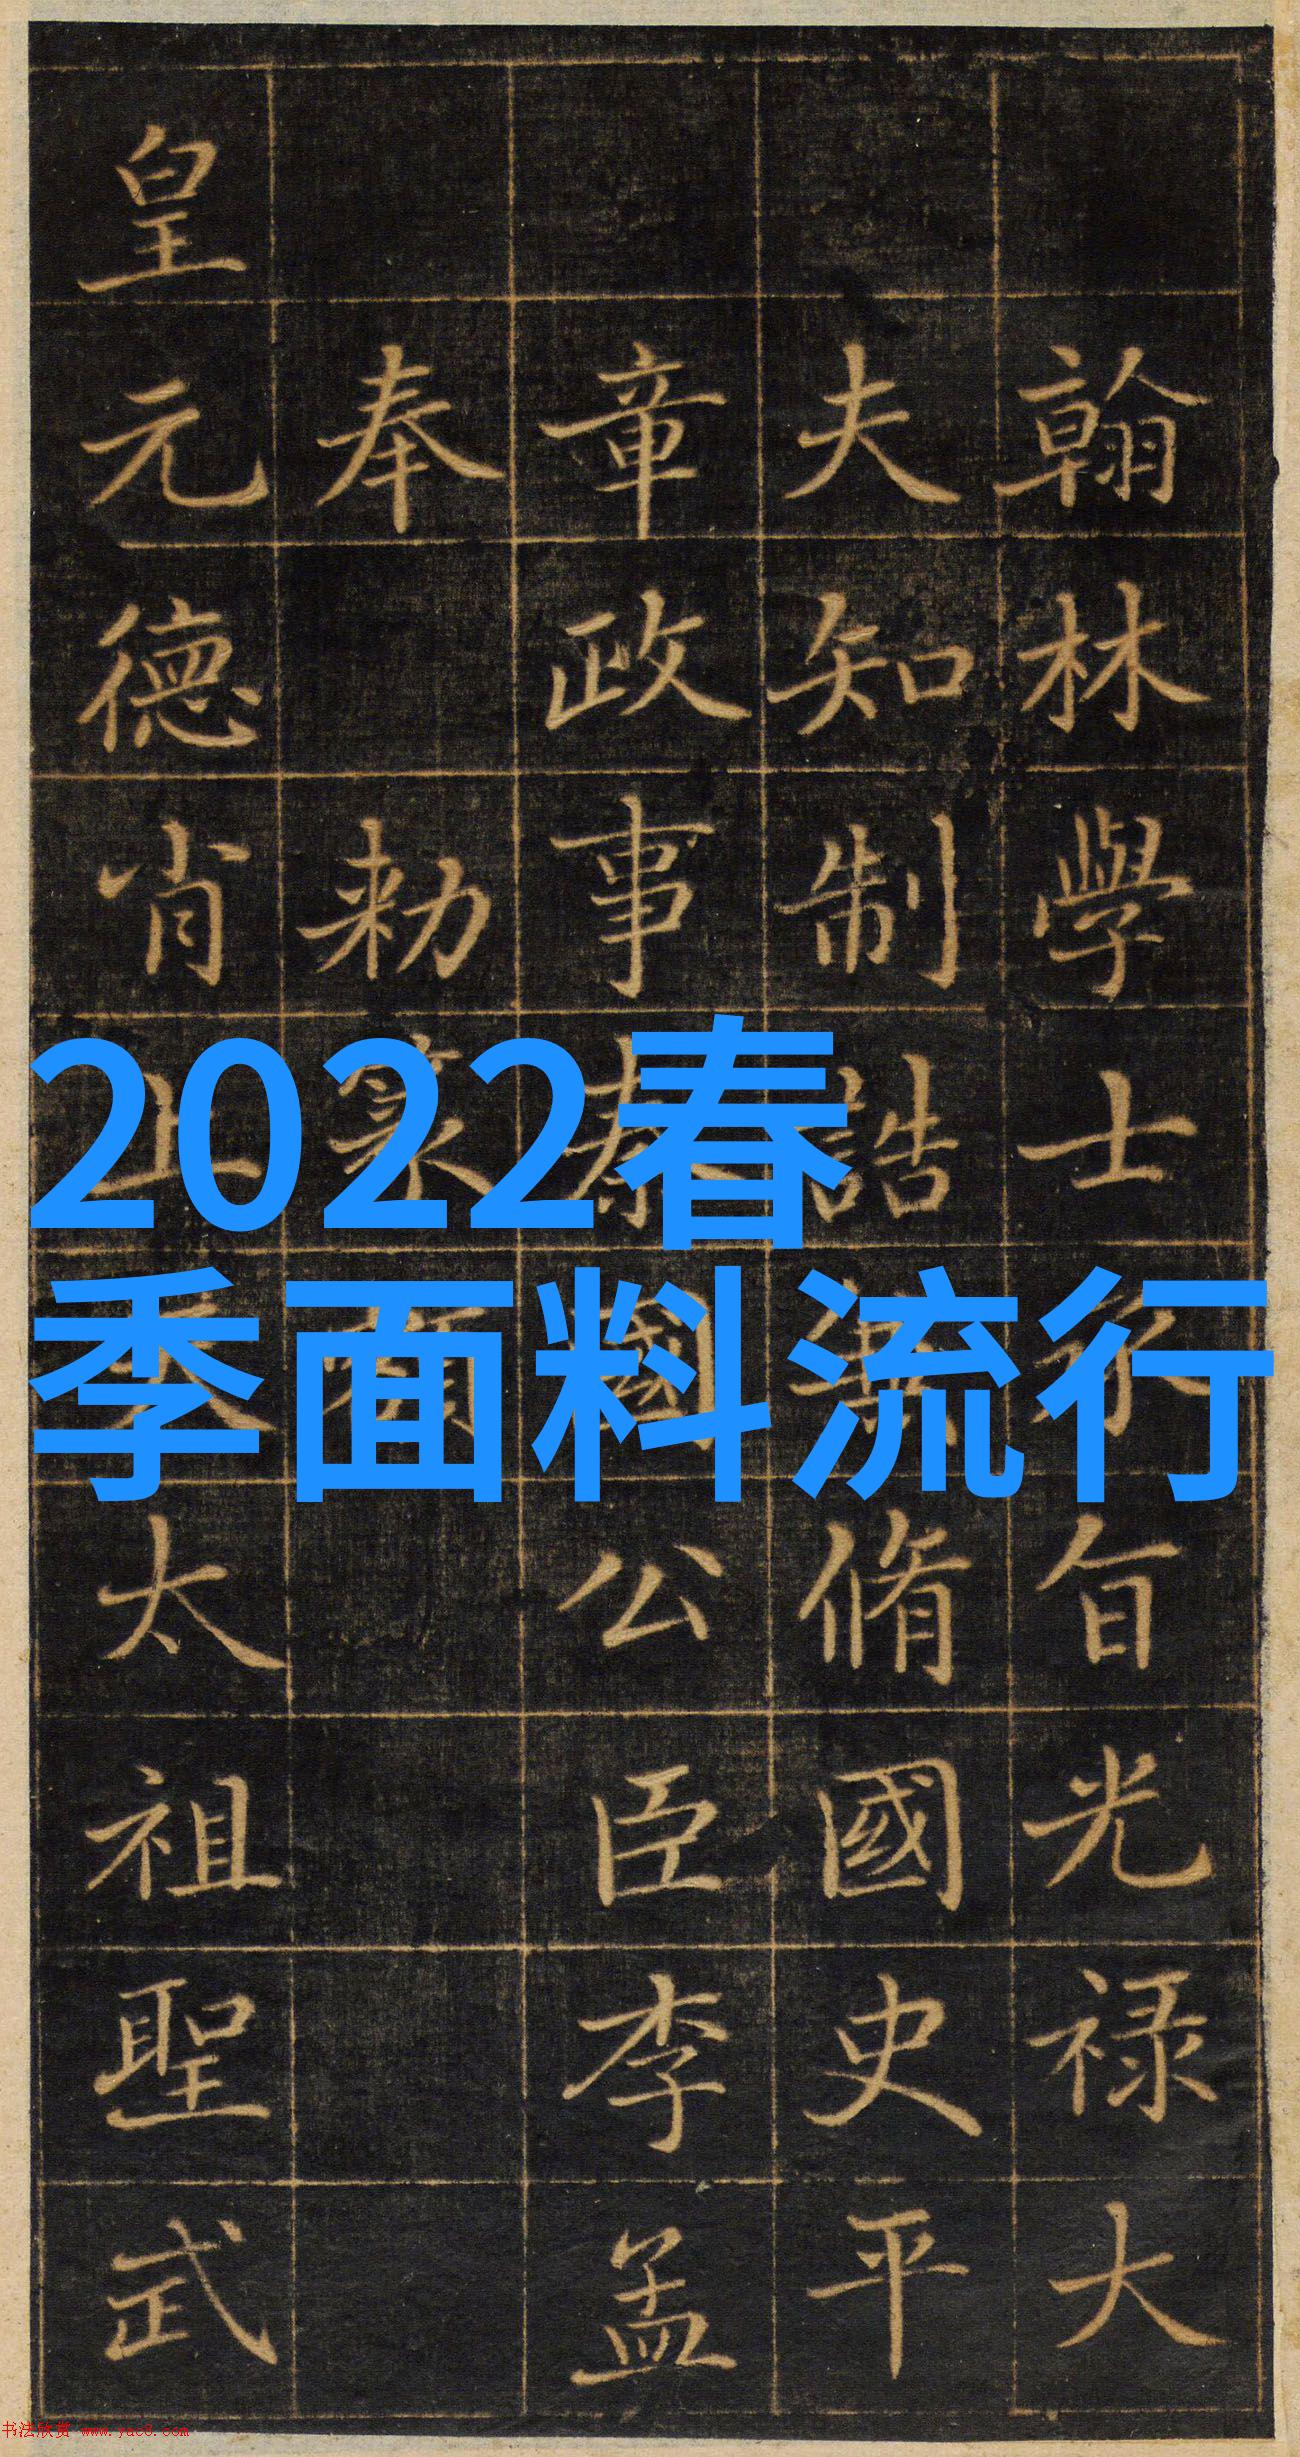 2022春
季面料流行
翰林學士承旨光禄大
夫知制誥兼脩國史平
章政事蔡國公臣李孟
奉勑篆額
皇元德肖上天太祖聖武
书法欣赏 www.yac8.com